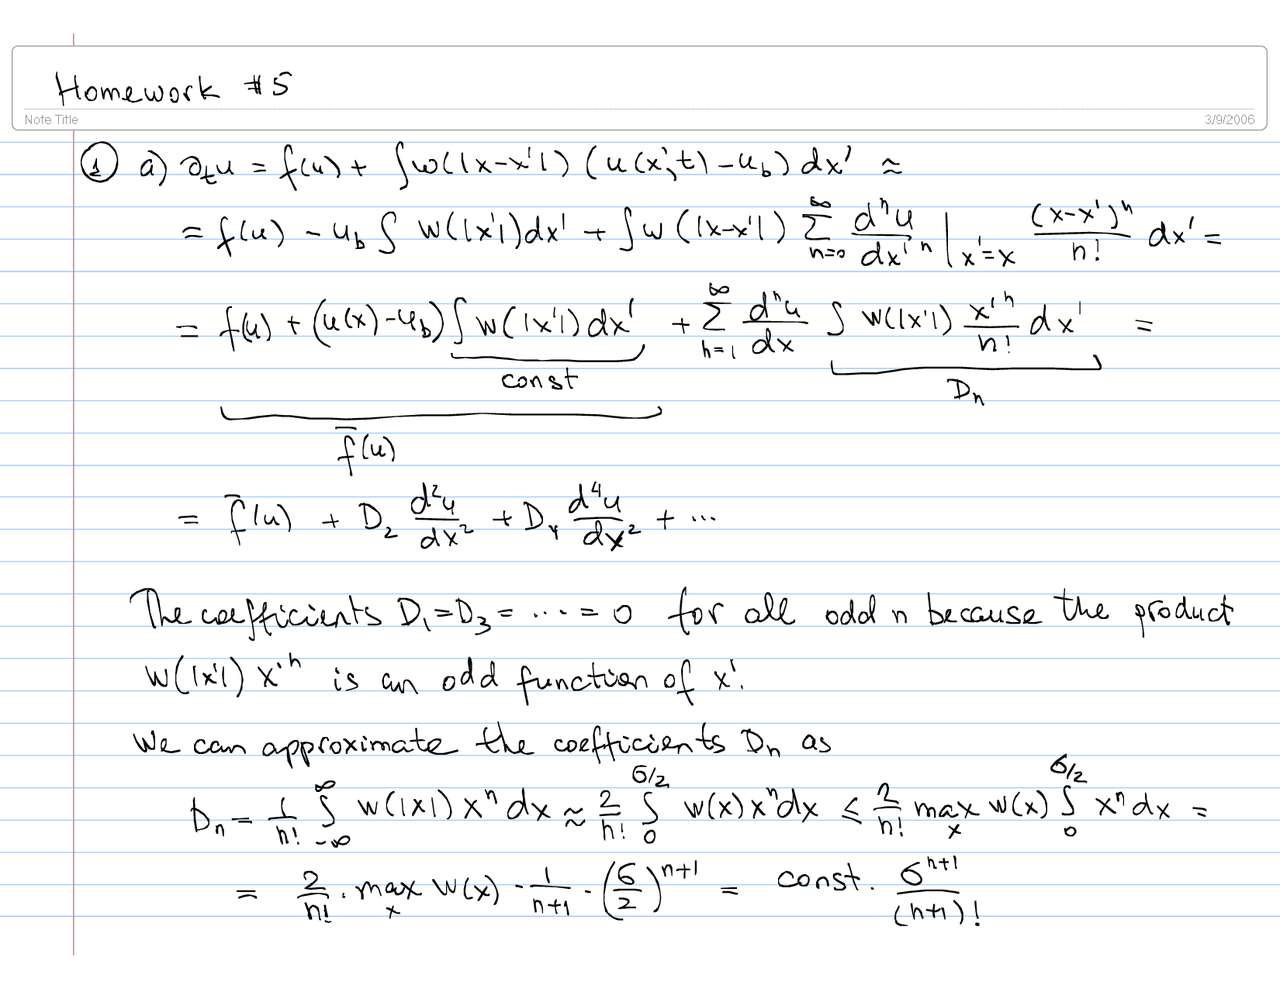 Homework #5
Note Title 3/9/2006
① a) ∂ₜu = f(u) + ∫w(|x-x'|) (u(x',t) - u_b) dx' ≈
= f(u) - u_b ∫ w(|x'|)dx' + ∫w(|x-x'|) ∑_{n=0}^{∞} d^n u/dx'^n |_{x'=x} (x-x')^n/n! dx' =
= f(u) + (u(x) - u_b) ∫ w(|x'|) dx' + ∑_{n=1}^{∞} d^n u/dx ∫ w(|x'|) x'^n/n! dx' =
const D_n
f̄(u)
= f̄(u) + D_2 d²u/dx² + D_4 d⁴u/dx² + ...
The coefficients D_1=D_3= ... = 0 for all odd n because the product
w(|x'|) x'^n is an odd function of x'.
We can approximate the coefficients D_n as
D_n = 1/n! ∫_{-∞}^{∞} w(|x|) x^n dx ≈ 2/n! ∫_0^{σ/2} w(x) x^n dx ≤ 2/n! max_x w(x) ∫_0^{σ/2} x^n dx =
= 2/n! · max_x w(x) · 1/(n+1) · (σ/2)^{n+1} = const. σ^{n+1}/(n+1)!